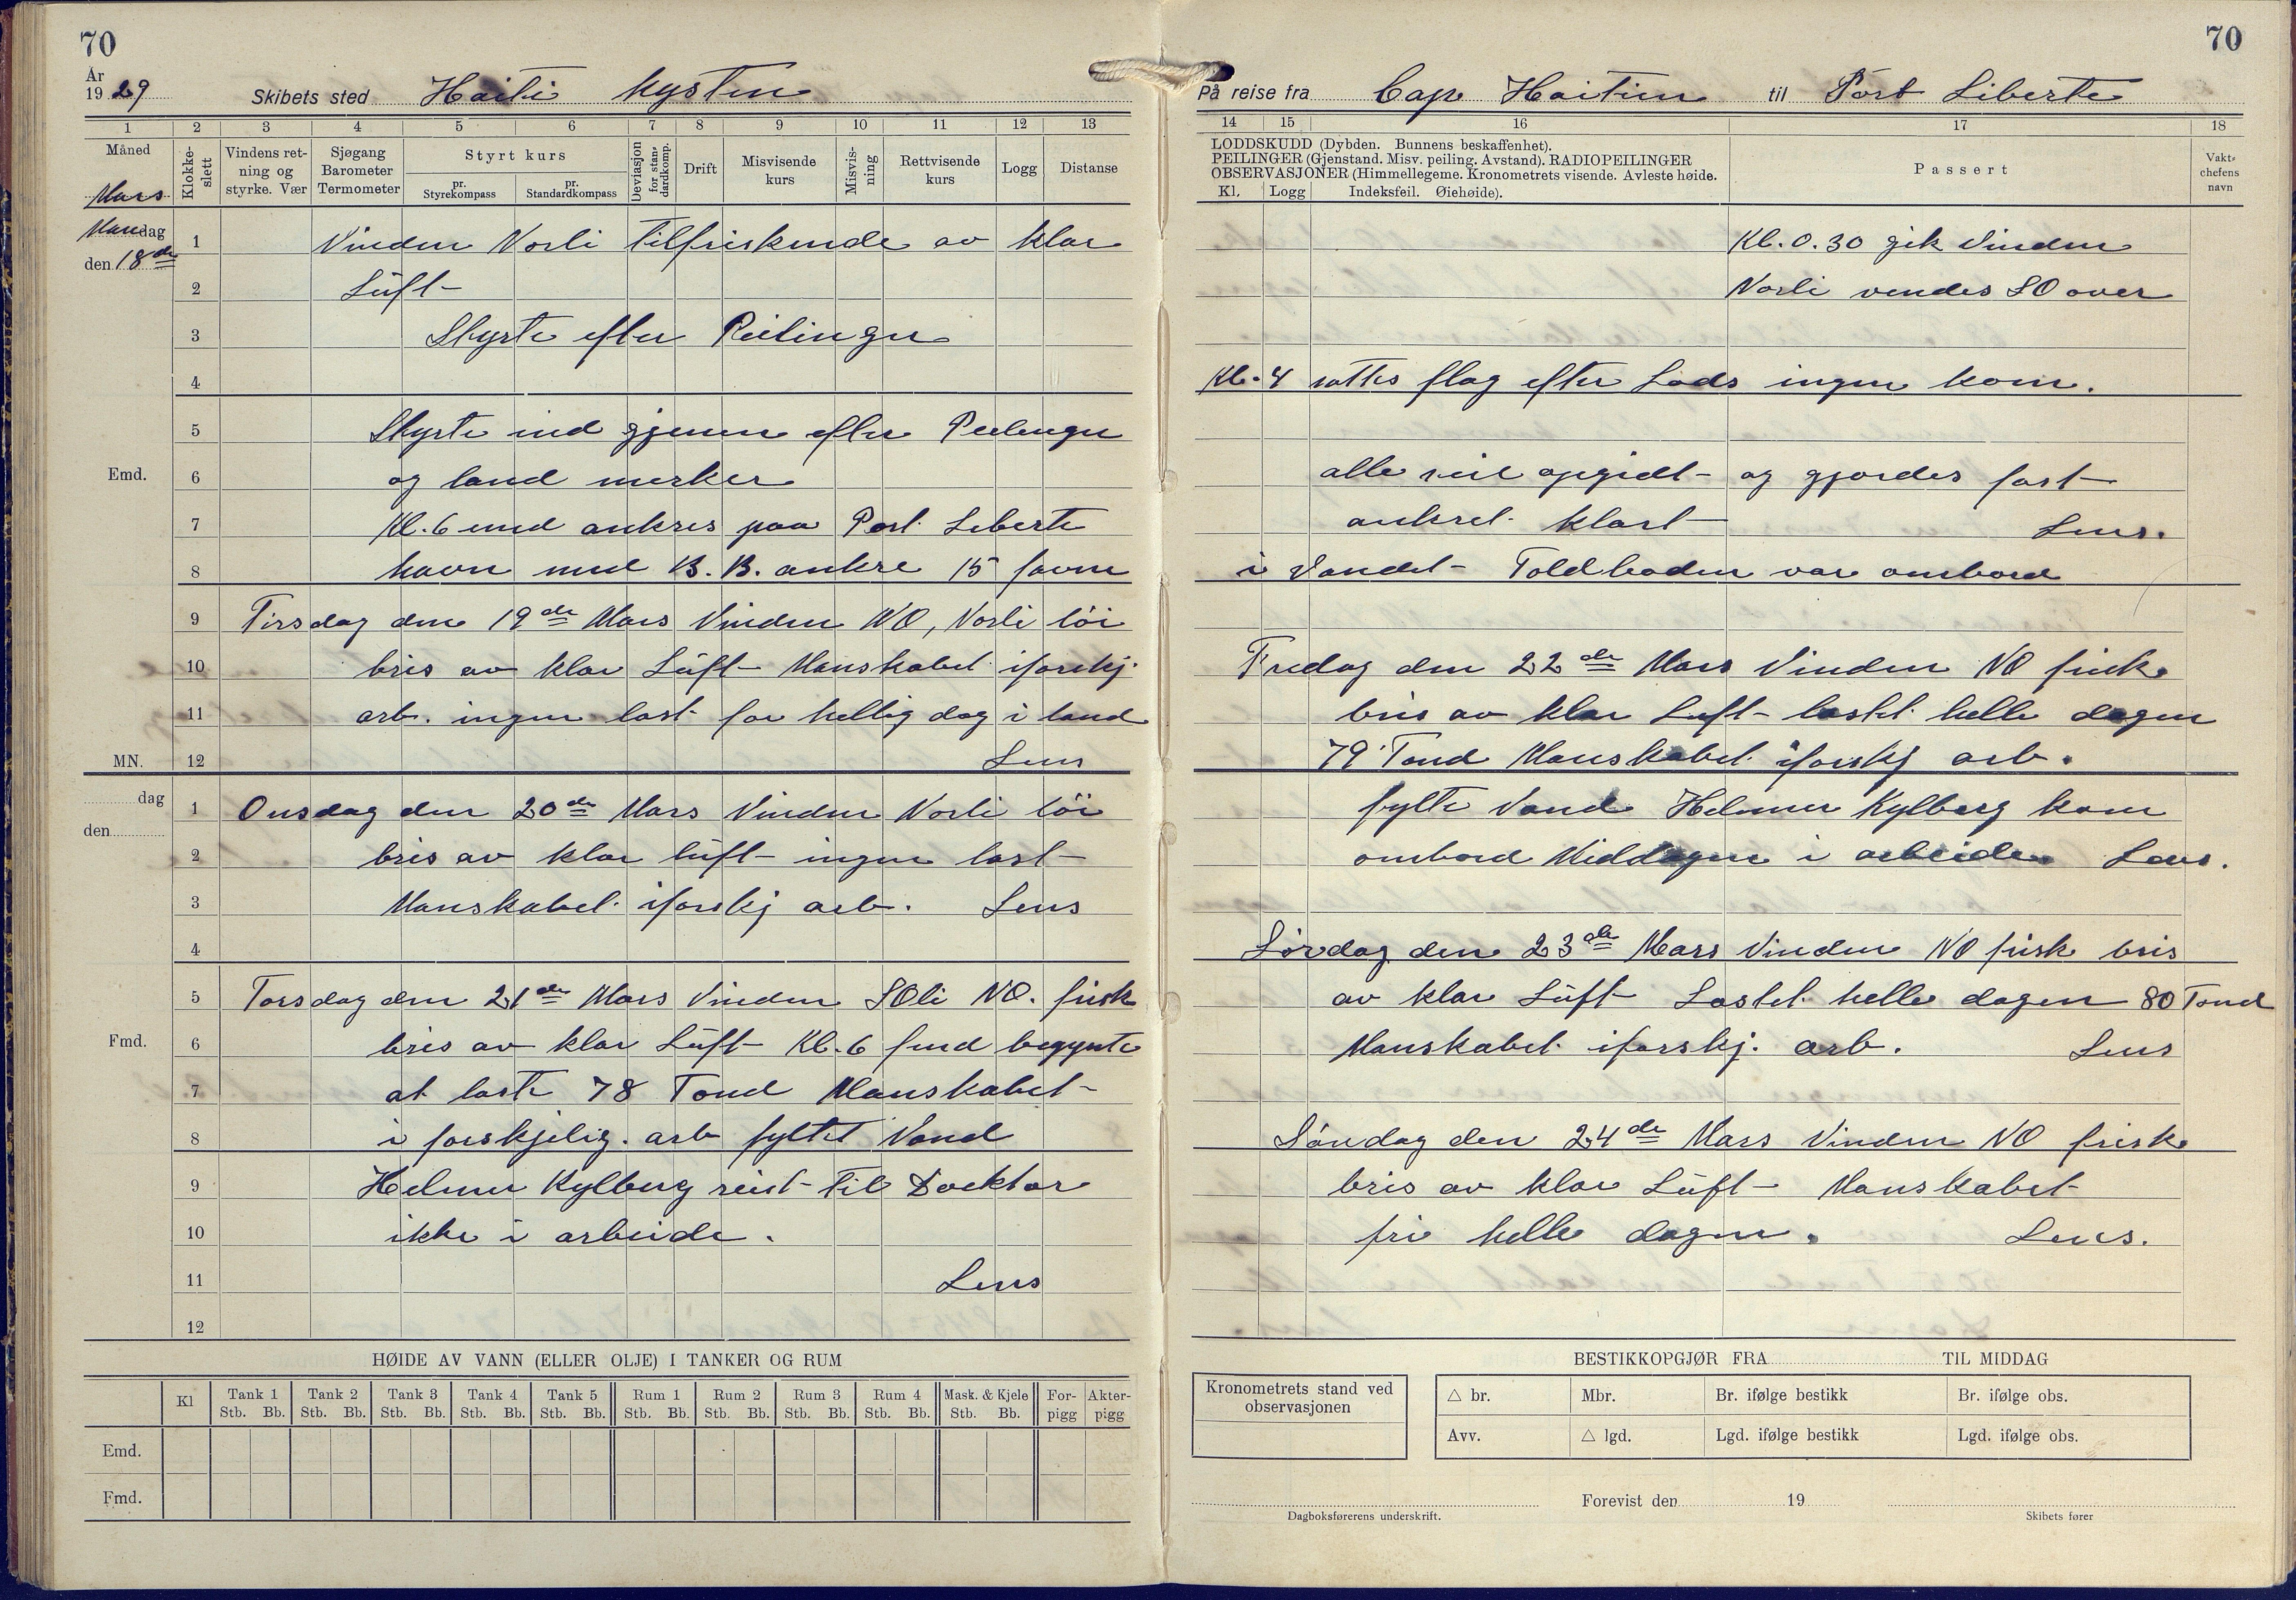 70
År
1929
Skibets sted Haiti Kysten
1 2 3 4 5 6 7 8 9 10 11 12 13
Måned
Mars
Klokke-
slett
Vindens ret-
ning og
styrke. Vær
Sjøgang
Barometer
Termometer
Styrt kurs
pr.
Styrekompass
pr.
Standardkompass
Deviasjon
for stan-
dardkomp.
Drift
Misvisende
kurs
Misvis-
ning
Rettvisende
kurs
Logg
Distanse
Mandag
den 18de
1 Vinden Norli tilfriskende av klar
2 Lüft
3 Styrte efter Peilinger
4
5 Styrte ind gjennem efter Peilinger
Emd. 6 og land merker
7 Kl. 6 emd ankres paa Port Liberte
8 havn med B.B. ankre 15 favne
9 Tirsdag den 19de Mars Vinden NO, Norli löi
10 bris av klar Lüft Manskabet iforskj.
11 arb. ingen last for hellig dag i land
MN. 12 Lens
dag
den
1 Onsdag den 20de Mars Vinden Norli löi
2 bris av klar lüft ingen last
3 Manskabet iforskj arb. Lens
4
5 Torsdag den 21de Mars Vinden SOli NO. frisk
Fmd. 6 bris av klar Lüft Kl. 6 fmd begynte
7 at laste 78 Tond Manskabet
8 i forskjelig. arb fyltet Vand
9 Helmer Kylberg reist til Docktor
10 ikke i arbeide.
11 Lens
12
HØIDE AV VANN (ELLER OLJE) I TANKER OG RUM
Kl
Tank 1
Stb. Bb.
Tank 2
Stb. Bb.
Tank 3
Stb. Bb.
Tank 4
Stb. Bb.
Tank 5
Stb. Bb.
Rum 1
Stb. Bb.
Rum 2
Stb. Bb.
Rum 3
Stb. Bb.
Rum 4
Stb. Bb.
Mask. & Kjele
Stb. Bb.
For-
pigg
Akter-
pigg
Emd.
Fmd.
70
På reise fra Cap Haitien til Port Liberte
14 15 16 17 18
LODDSKUDD (Dybden. Bunnens beskaffenhet).
PEILINGER (Gjenstand. Misv. peiling. Avstand). RADIOPEILINGER
OBSERVASJONER (Himmellegeme. Kronometrets visende. Avleste høide.
Kl. Logg Indeksfeil. Øiehøide).
Passert
Vakt-
chefens
navn
Kl. 0.30 gik Vinden
Norli vendes SO over
Kl. 4 sattes flag efter Lods ingen kom.
alle seil opgidt og gjordes fast
ankret klart Lens.
i Vandet Toldboden var ombord
Fredag den 22de Mars Vinden NO frisk
bris av klar Luft lastet helle dagen
79 Tond Manskabet iforskj arb.
fylte Vand Helmer Kylberg kom
ombord Middagen i arbeide Lens.
Lördag den 23de Mars Vinden NO frisk bris
av klar Lüft Lastet helle dagen 80 Tond
Manskabet iforskj. arb. Lens
Söndag den 24de Mars Vinden NO frisk
bris av klar Lüft Manskabet
fri helle dagen. Lens.
BESTIKKOPGJØR FRA TIL MIDDAG
Kronometrets stand ved
observasjonen
△ br. Mbr. Br. ifølge bestikk Br. ifølge obs.
Avv. △ lgd. Lgd. ifølge bestikk Lgd. ifølge obs.
Forevist den 19
Dagboksførerens underskrift.
Skibets fører